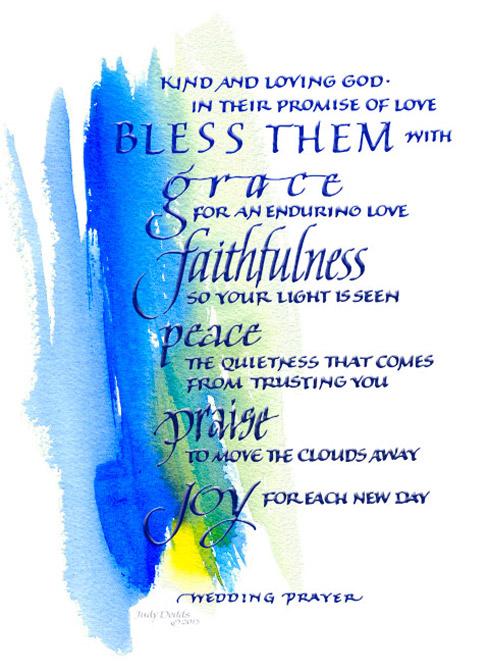 KIND AND LOVING GOD·
IN THEIR PROMISE OF LOVE
BLESS THEM WITH
grace
FOR AN ENDURING LOVE
faithfulness
SO YOUR LIGHT IS SEEN
peace
THE QUIETNESS THAT COMES
FROM TRUSTING YOU
praise
TO MOVE THE CLOUDS AWAY
joy FOR EACH NEW DAY
WEDDING PRAYER
Judy Dodds
©2015